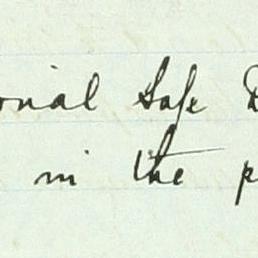 onal Safe D
in the p